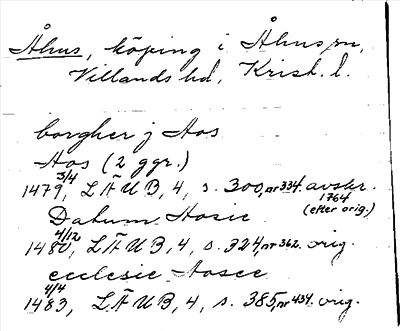 Åhus, köping i Åhus sn,
Villands hd, Krist. l.
borgher j Aos
Aos (2 ggr.)
1479 3/4, LÄUB, 4, s. 300, nr 334. avskr. 1764 (efter orig.)
Datum Aosie
1480 4/12, LÄUB, 4, s. 324, nr 362. orig.
ecclesie Aosee
1483 4/4, LÄUB, 4, s. 385, nr 434. orig.